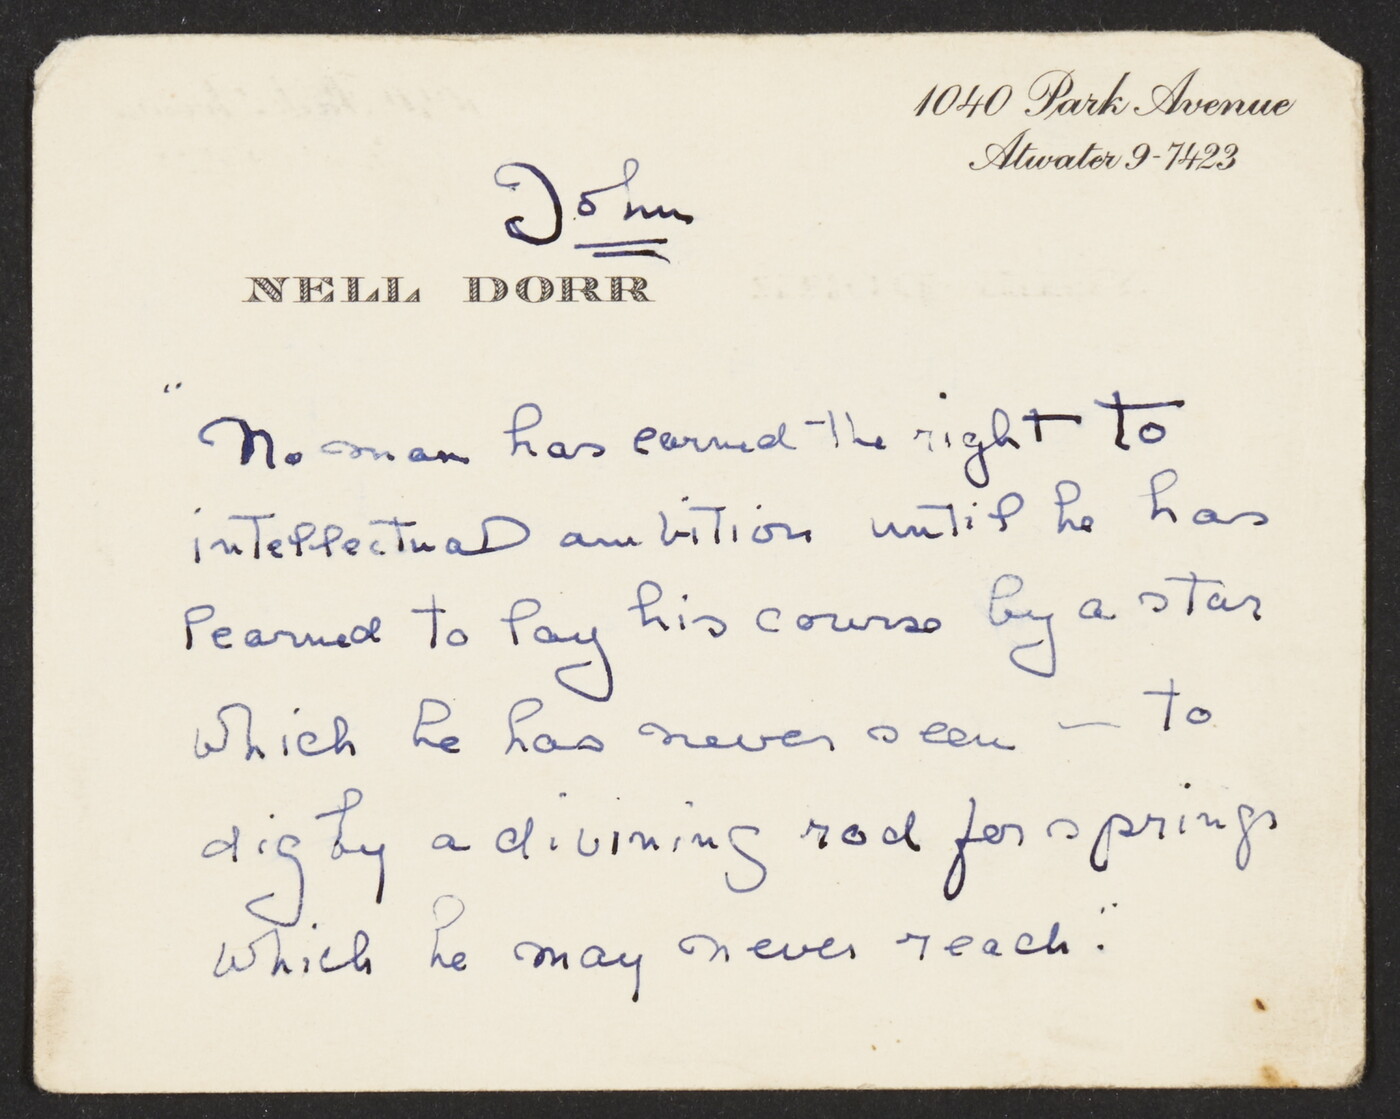 1040 Park Avenue
Atwater 9-7423
John
NELL DORR
"No man has earned the right to
intellectual ambition until he has
learned to lay his course by a star
which he has never seen — to
dig by a divining rod for springs
which he may never reach."